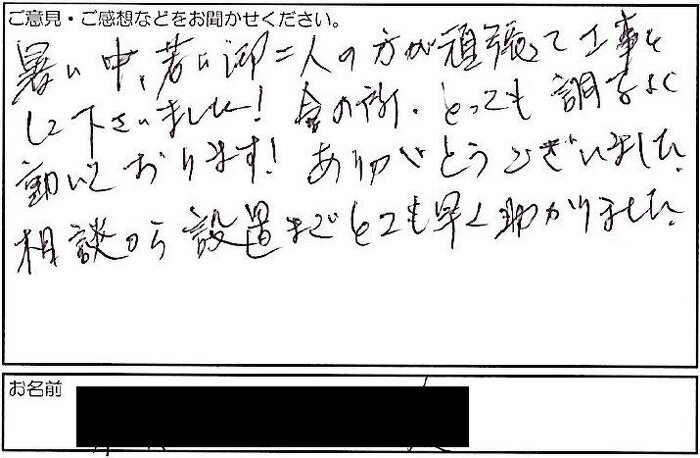 ご意見・ご感想などをお聞かせください。
暑い中、若い御二人の方が頑張って工事を
して下さいました！今の所、とっても調子よく
動いております！ありがとうございました。
相談から設置までとても早く助かりました。
お名前